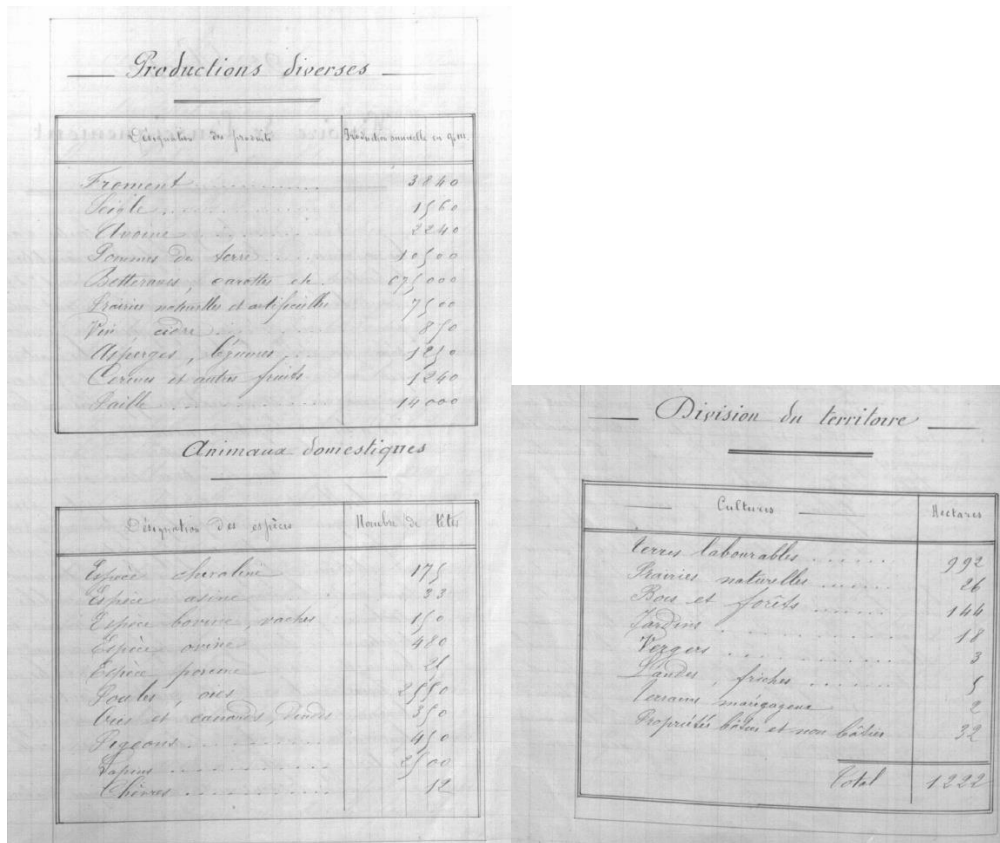 Productions diverses
Désignation des produits Production annuelle en q. m.
Froment 3840
Seigle 1560
Avoine 2240
Pommes de terre 10500
Betteraves, carottes etc. 675000
Prairies naturelles et artificielles 7500
Vin cidre 850
Asperges, légumes 1250
Cerises et autres fruits 1240
Paille 14000
Animaux domestiques
Désignation des espèces Nombre de têtes
Espèce chevaline 175
Espèce asine 33
Espèce bovine, vaches 150
Espèce ovine 480
Espèce porcine 25
Poules, 2550
Oies et canards, dindes 350
Pigeons 450
Lapins 2500
Chèvres 12
Division du territoire
Cultures Hectares
Terres labourables 992
Prairies naturelles 26
Bois et forêts 144
Jardins 18
Vergers 3
Landes, friches 5
Terrains marécageux 2
Propriétés bâties et non bâties 32
Total 1222